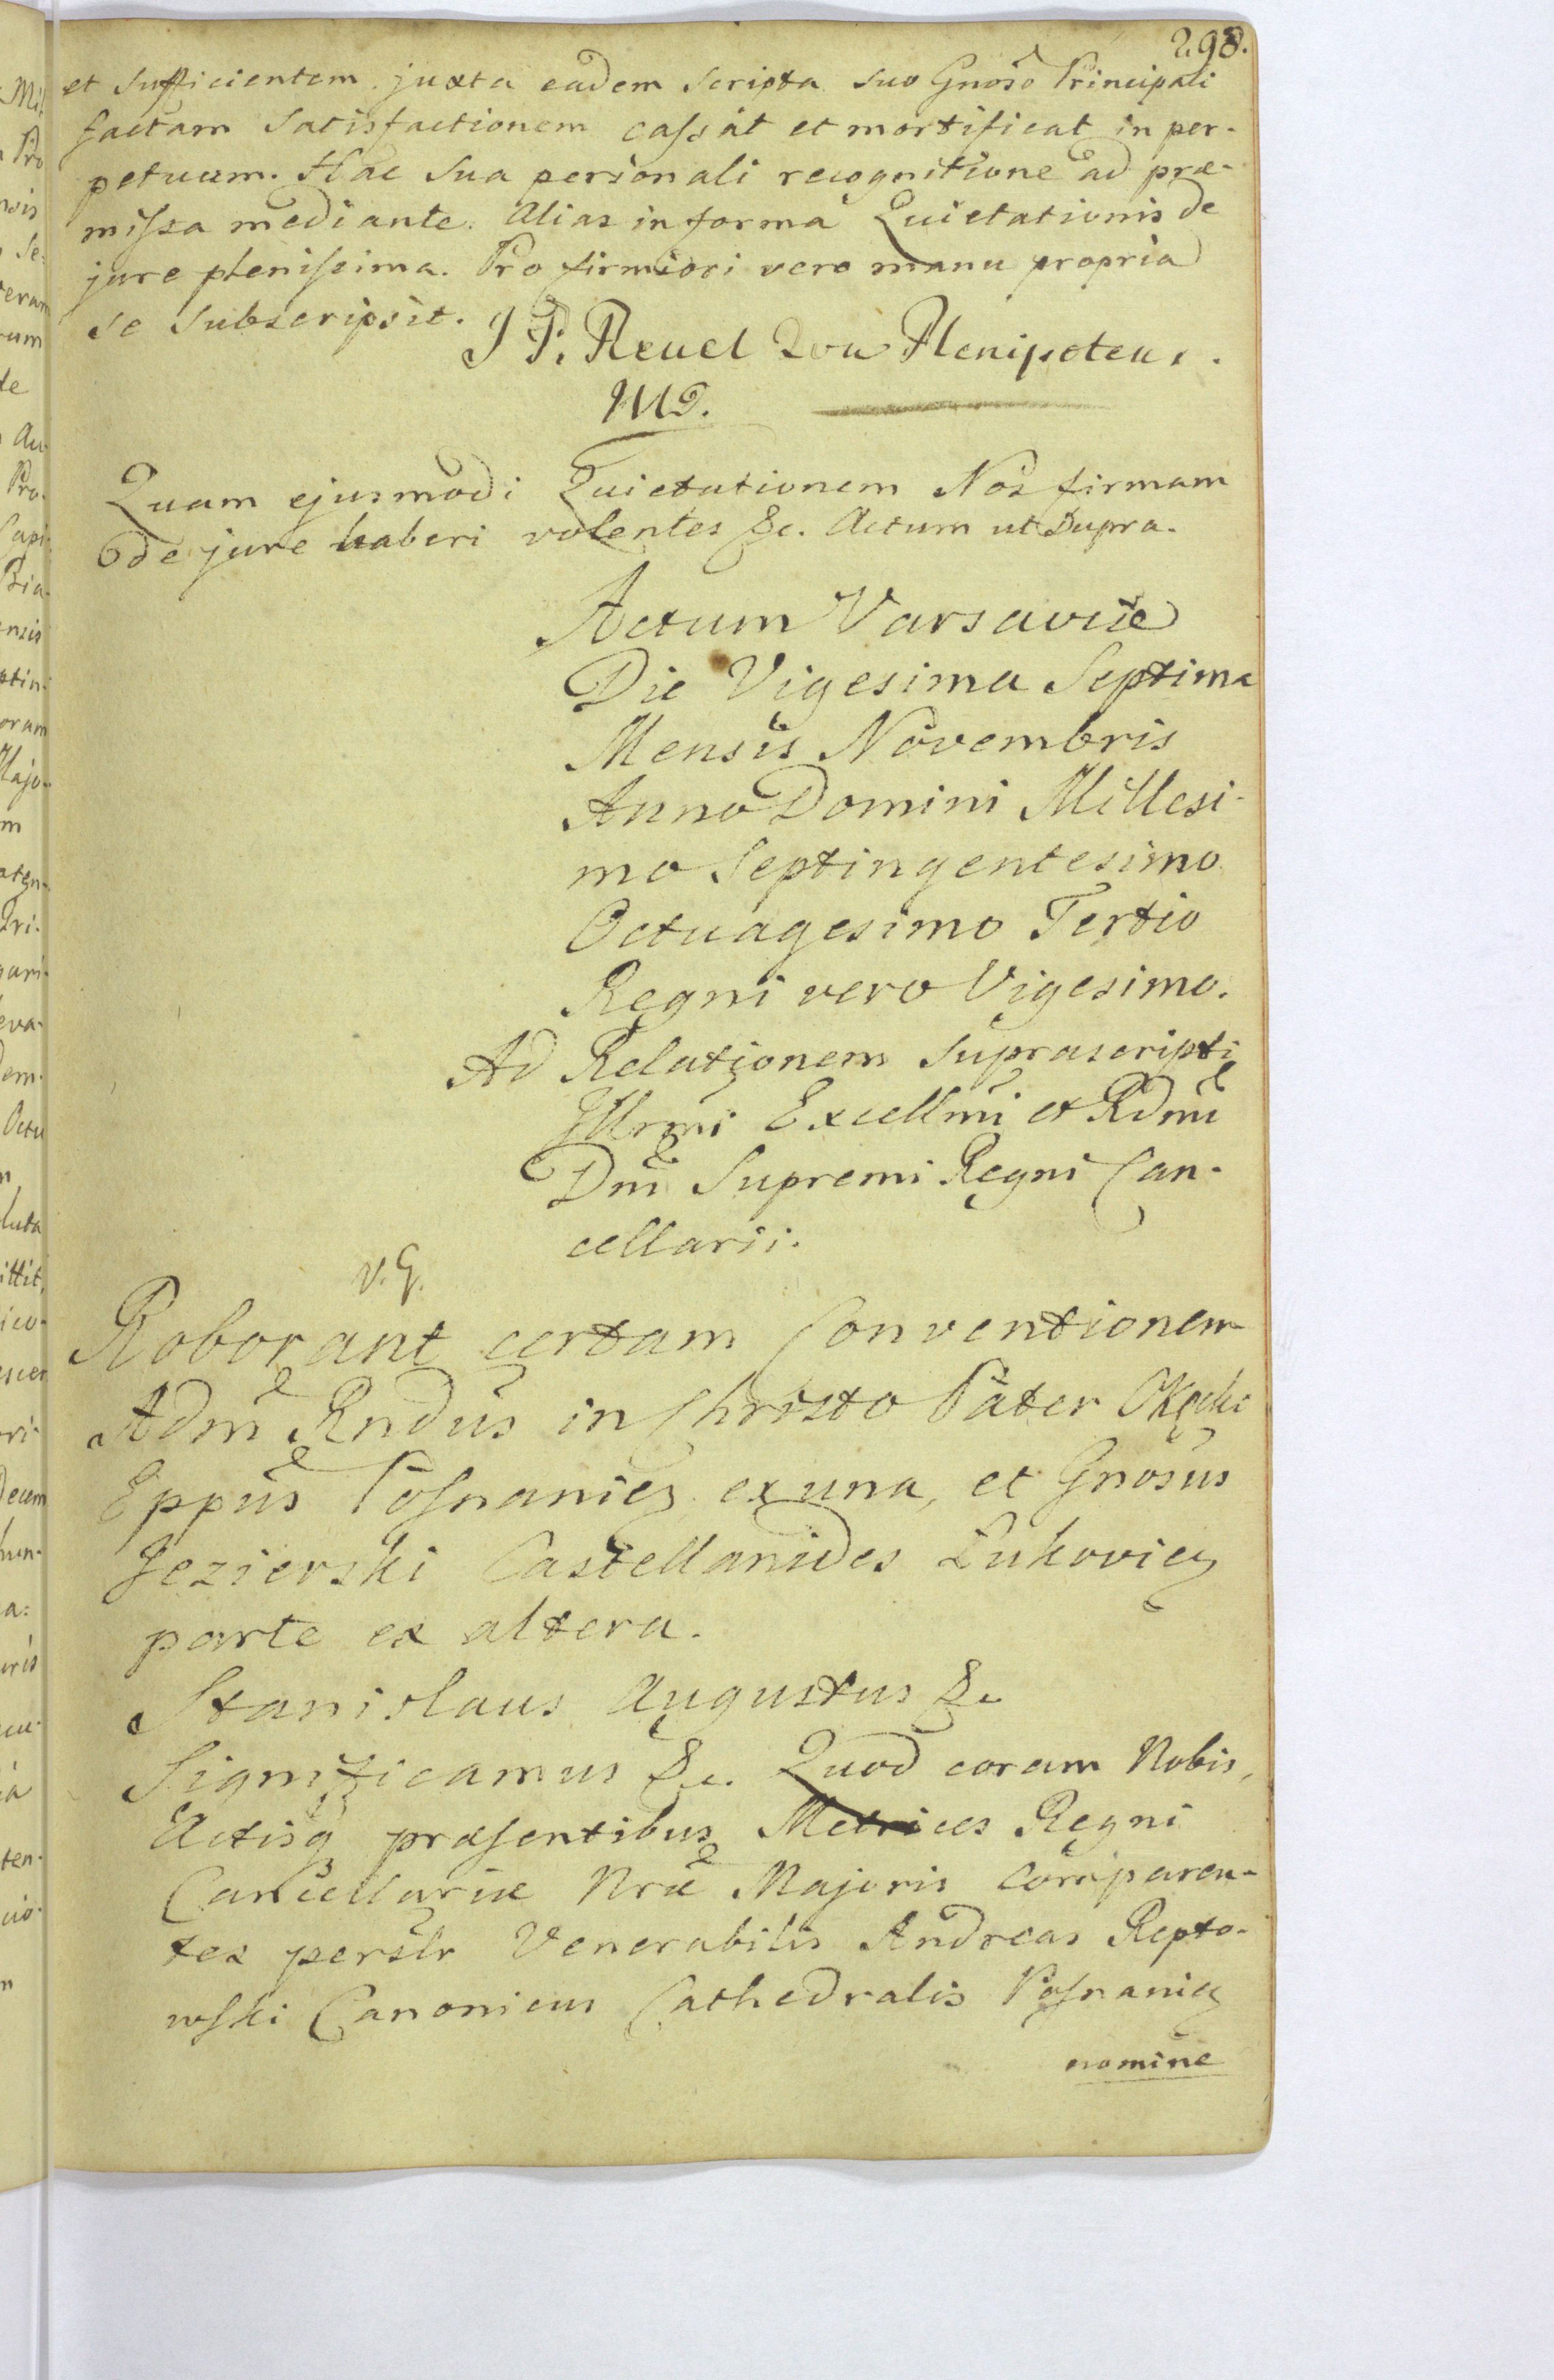 298.
et sufficientem juxta eadem scripta suo Gnoso Principali
factam satisfactionem cassat et mortificat in per-
petuum. Hac sua personali recognitione ad præ-
missa mediante. Alias in forma Quietationis de
jure plenissima. Pro firmiori vero manu propria
se subscripsit.
J P. Reuel Plenipotens.
Quam ejusmodi Quietationem Nos firmam
de jure haberi volentes &c. Actum ut Supra.
Actum Varsaviæ
Die Vigesima Septima
Mensis Novembris
Anno Domini Millesi-
mo Septingentesimo
Octuagesimo Tertio
Regni vero Vigesimo.
Ad Relationem suprascripti
Illrmi Excellmi et Rdmi
Dni Supremi Regni Can-
cellarii.
v. G.
Roborant certam Conventionem
Adm Rndus in Christo Pater Okęcki
Eppus Posnanieñ ex una, et Gnosus
Jezierski Castellanides Lukovieñ
parte ex altera.
Stanislaus Augustus &c
Significamus &c. Quod coram Nobis,
Actisq præsentibus Metrices Regni
Cancellariæ Nræ Majoris Comparen-
tes persłr Venerabilis Andreas Repto-
wski Canonicus Cathedralis Posnanieñ
nomine